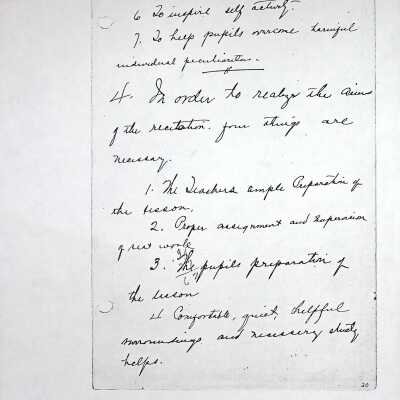 6 To inspire self activity.
7. To help pupils overcome harmful
individual peculiarities.
4. In order to realize the aims
of the recitation four things are
necessary.
1. The Teachers ample Preparation of
the lesson.
2. Proper assignment and supervision
of seat work
3. The pupils preparation of
the lesson
4 Comfortable, quiet, helpful
surroundings and necessary study
helps.
20